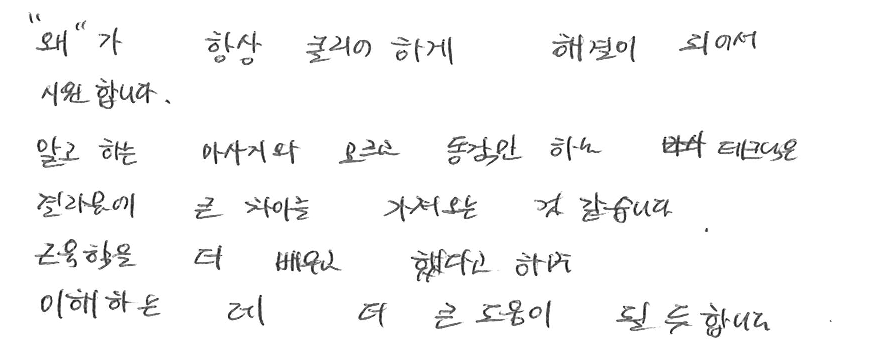 "왜"가 항상 클리어 하게 해결이 되어서
시원 합니다.
알고 하는 마사지와 모르고 동작만 하는 테크닉은
결과물에 큰 차이를 가져오는 것 같습니다.
근육학을 더 배우고 했다고 하면
이해하는 데 더 큰 도움이 될 듯 합니다.